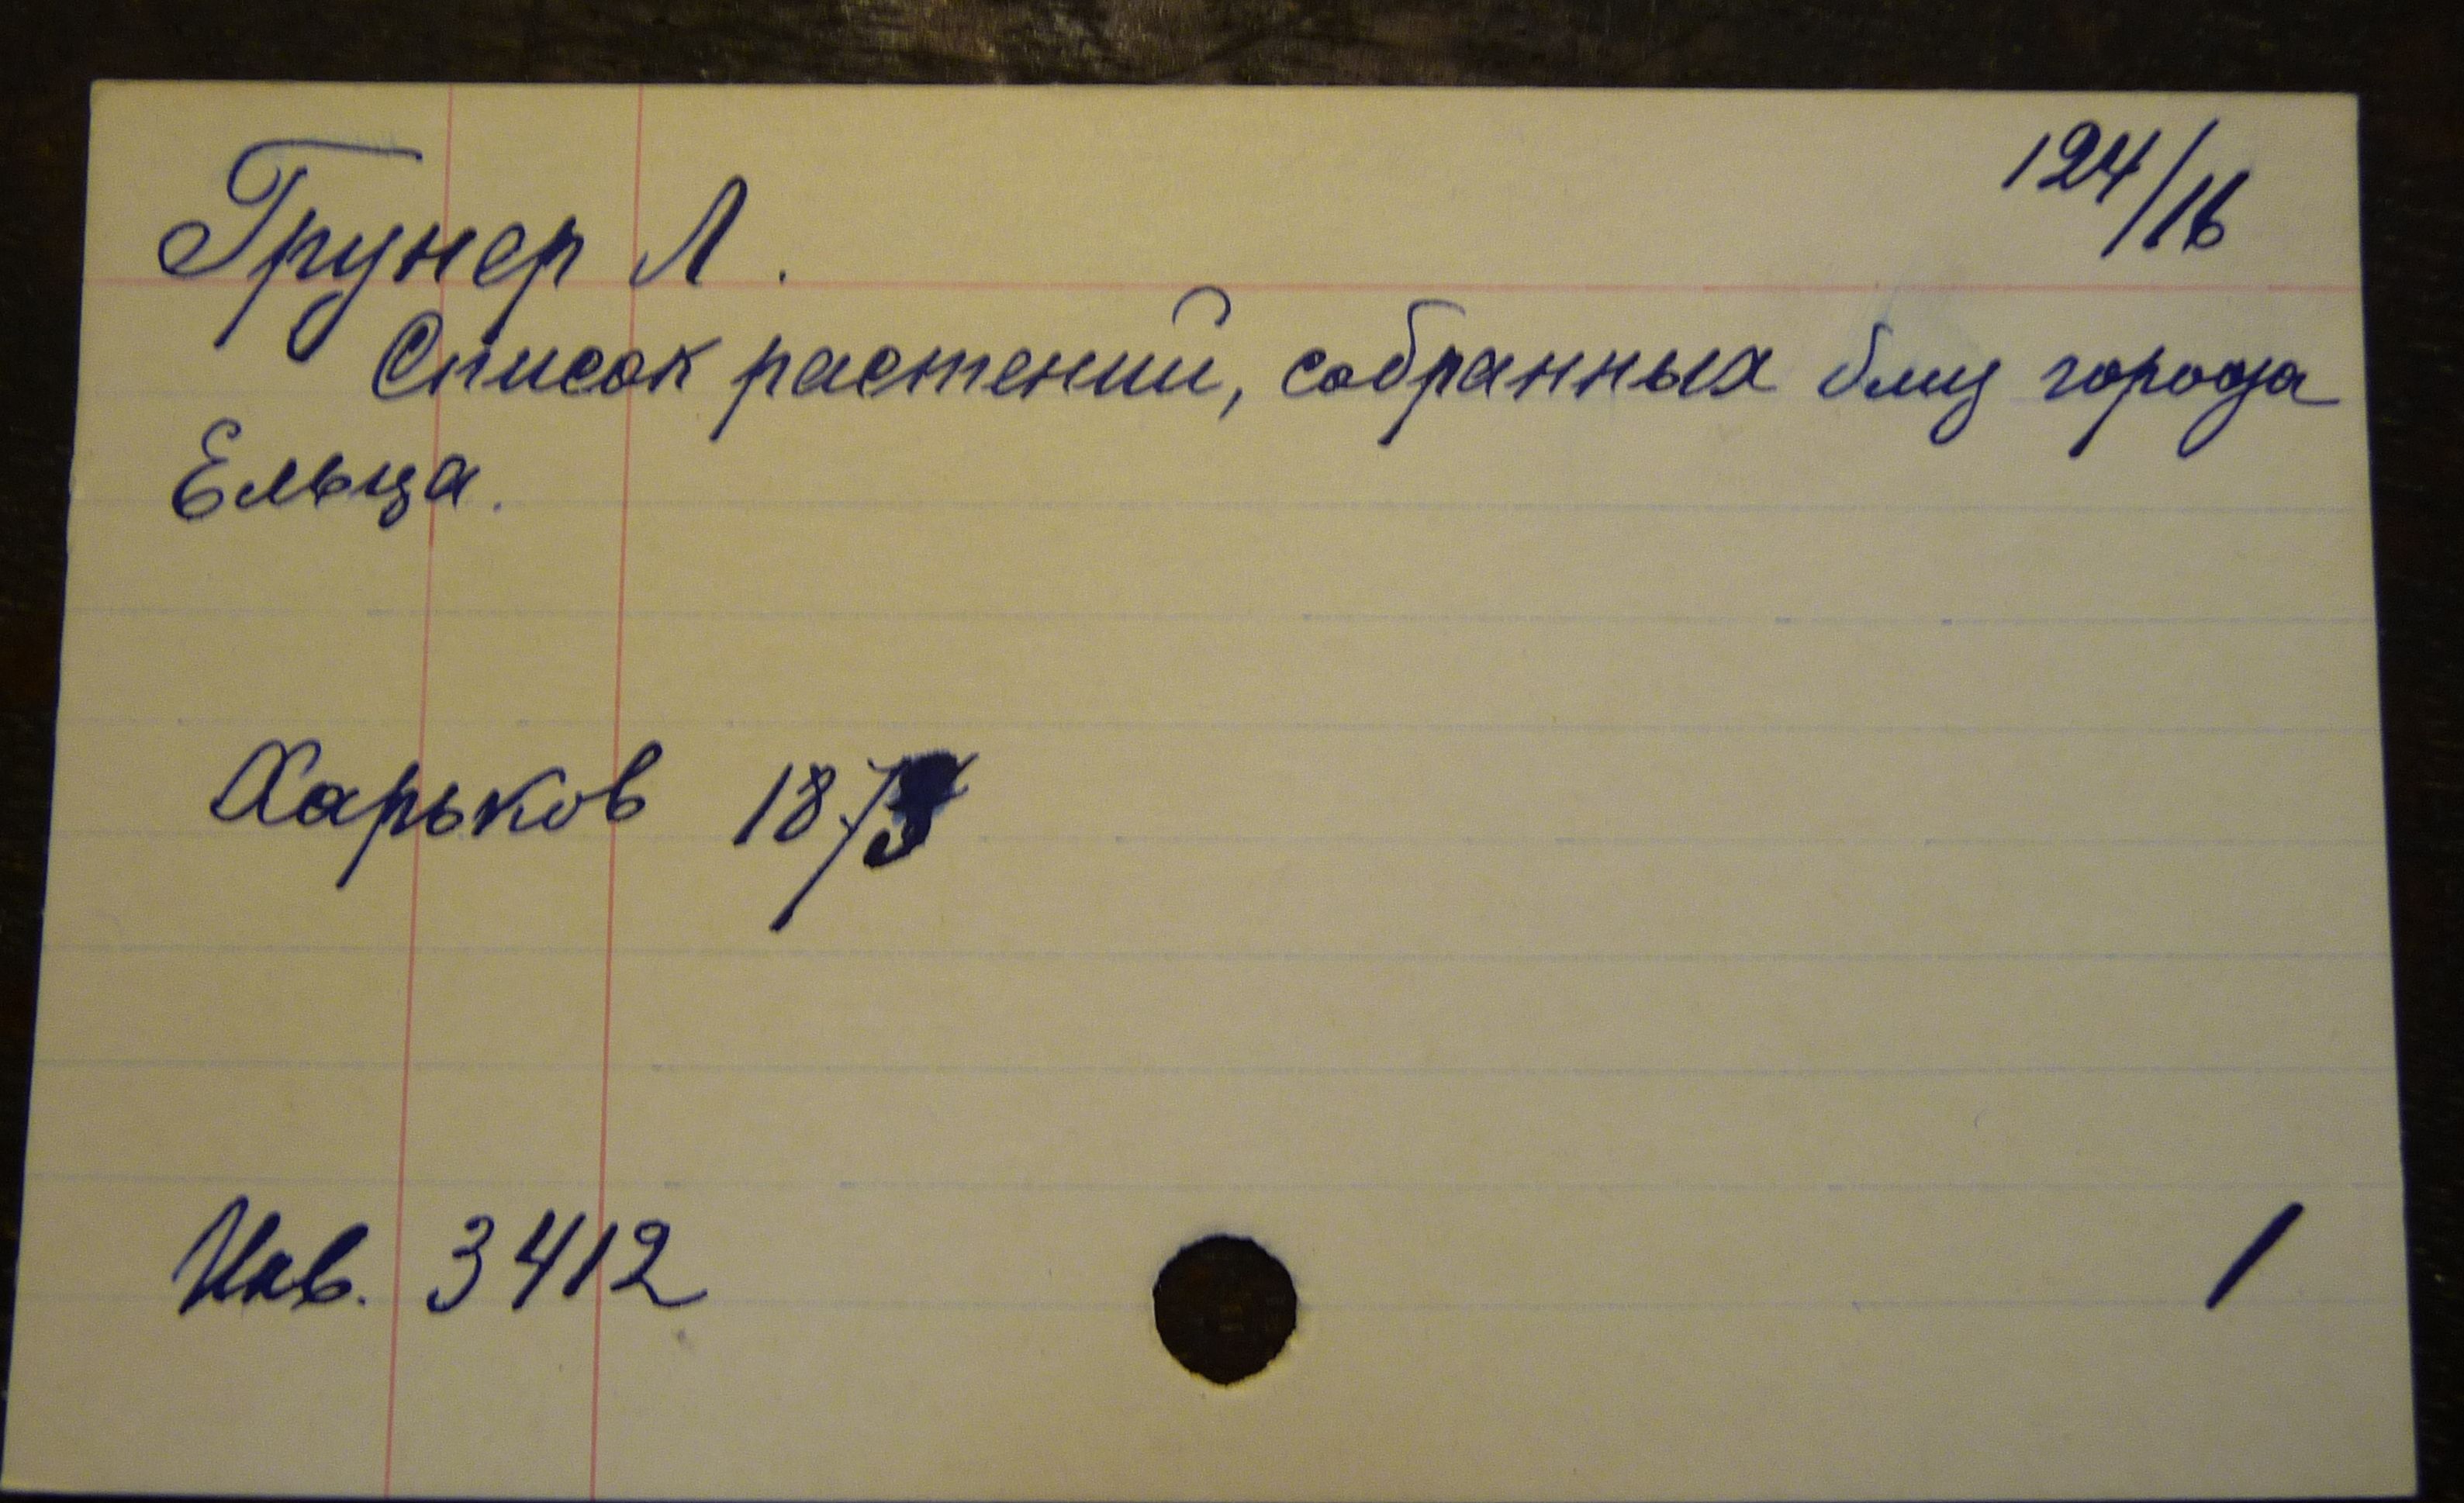 124/16
Грунер Л.
Список растений, собранных близ города
Ельца.
Харьков 1873
Инв. 3412
1